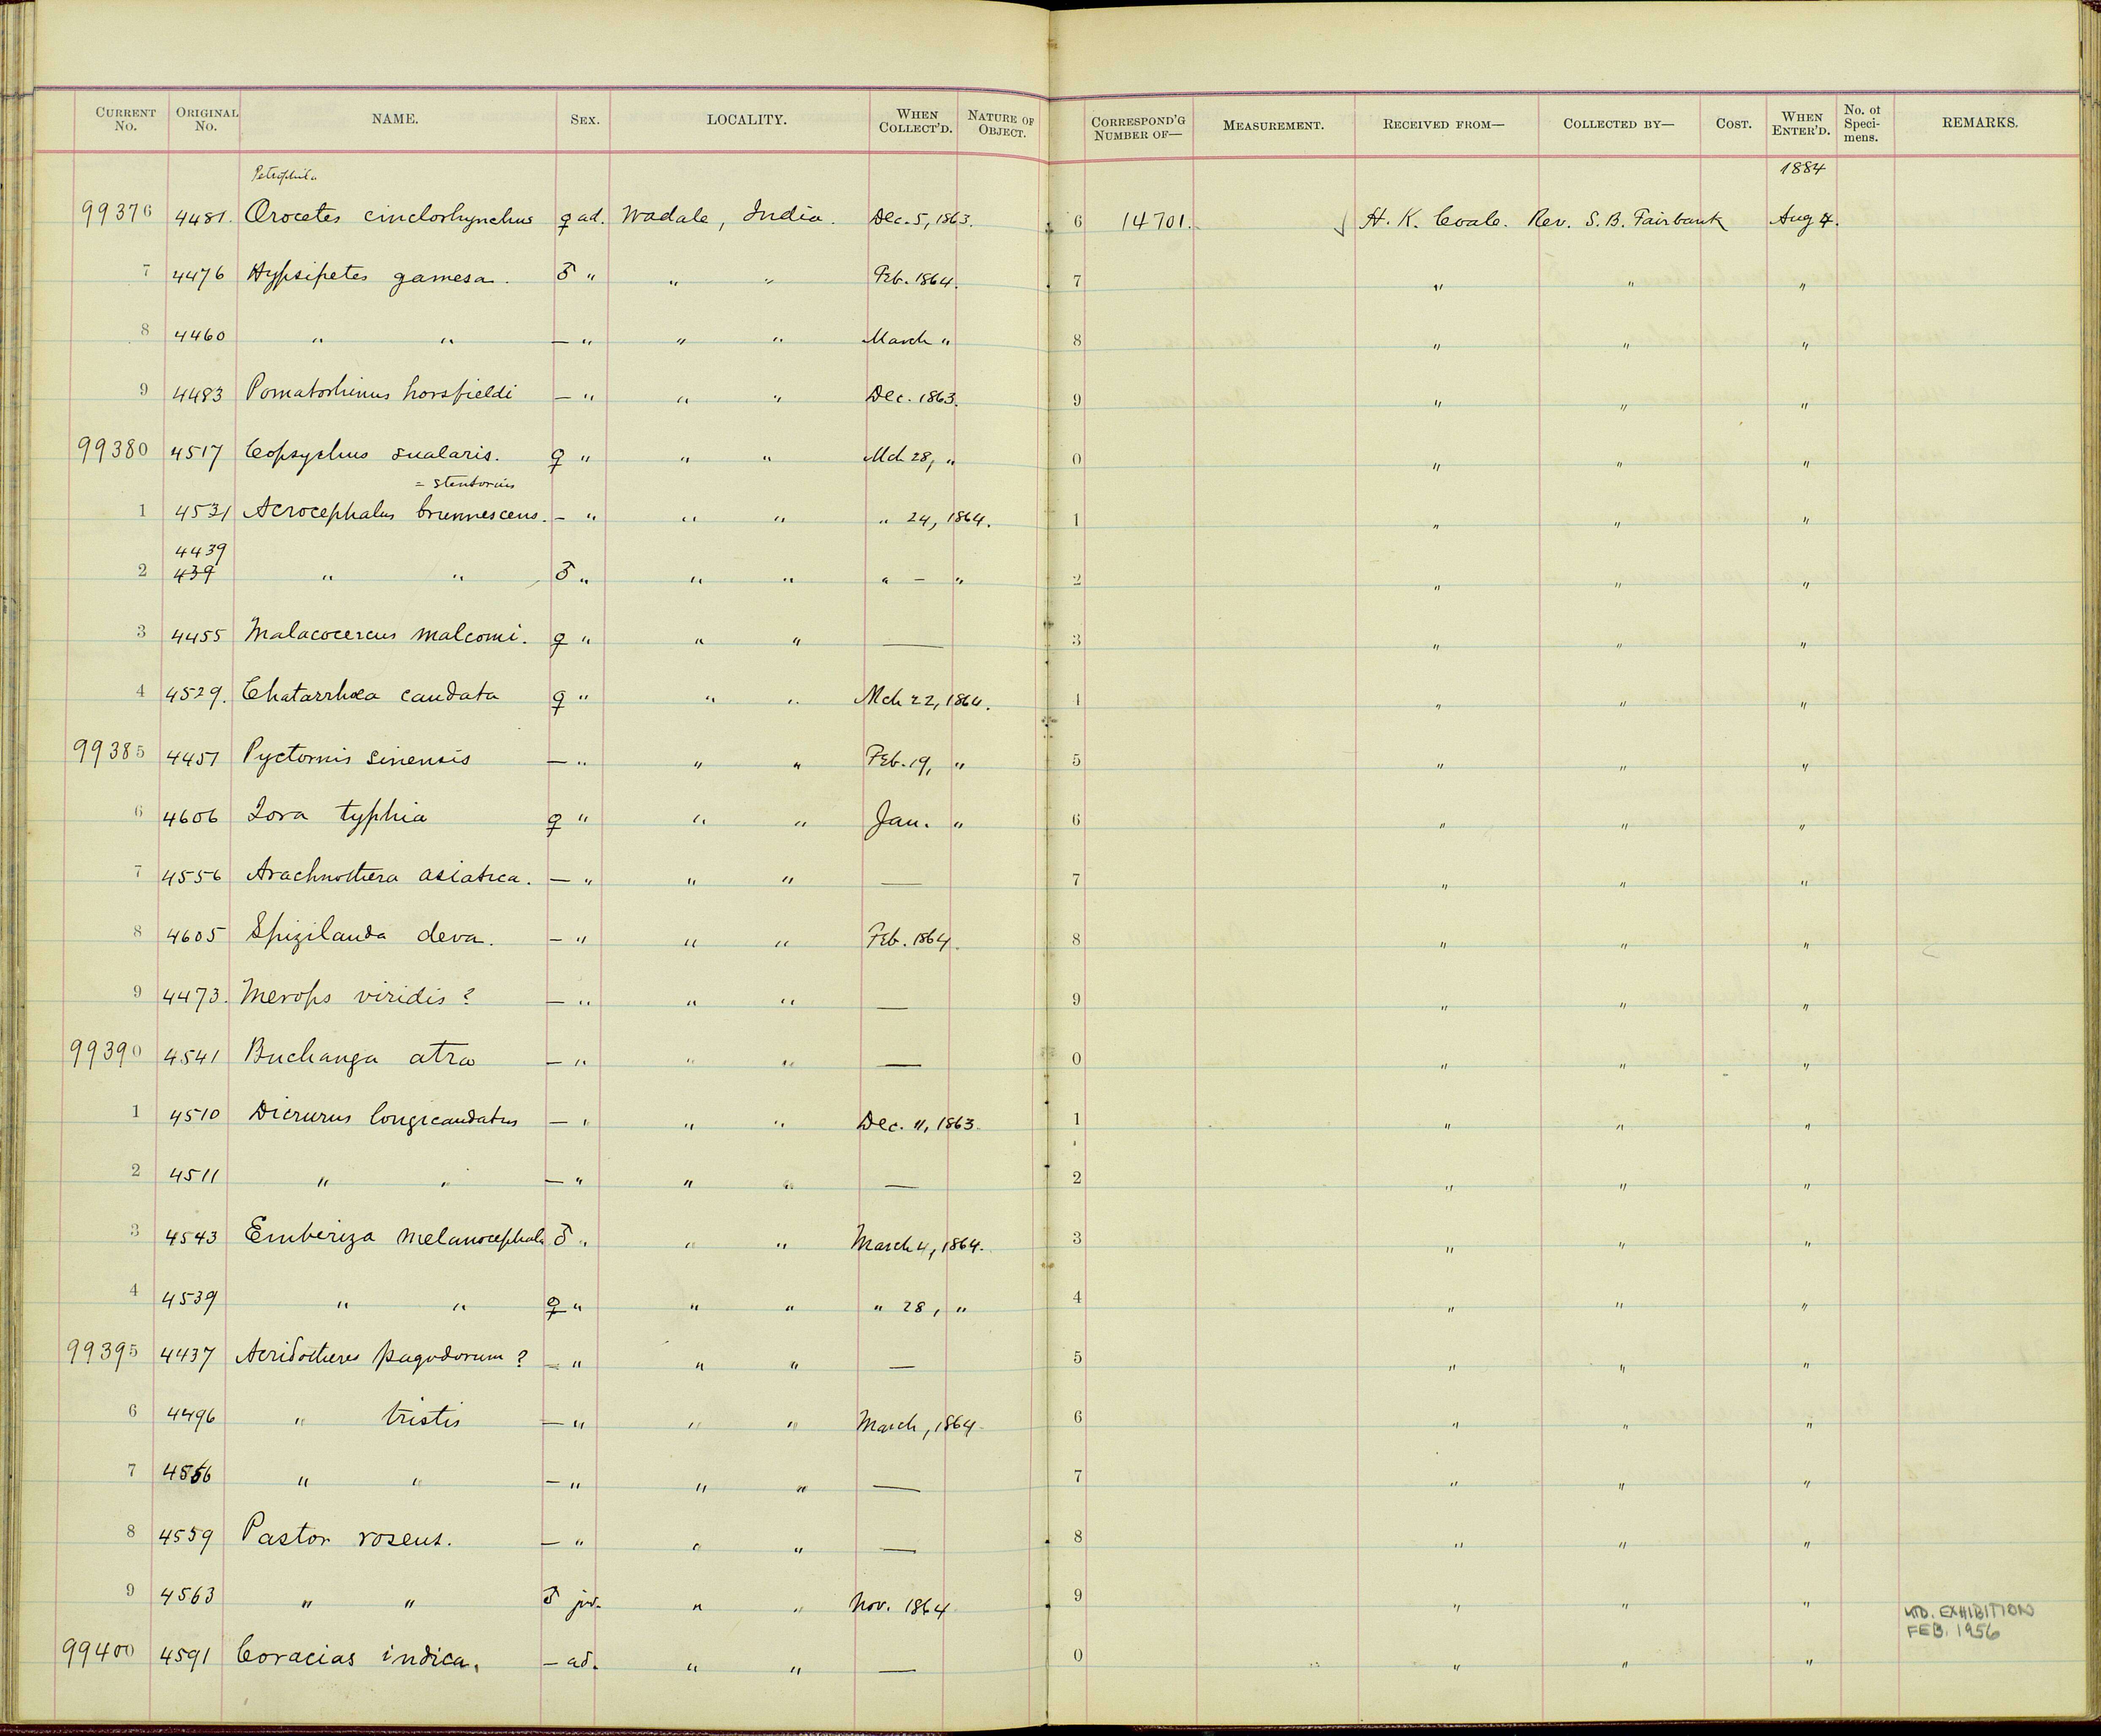 CURRENT No. ORIGINAL No. NAME. SEX. LOCALITY. WHEN COLLECT'D. NATURE OF OBJECT. CORRESPOND'G NUMBER OF— MEASUREMENT. RECEIVED FROM— COLLECTED BY— COST. WHEN ENTER'D. No. of Specimens. REMARKS.
Petrophila 1884
99376 4481. Orocetes cinclorhynchus ♀ ad. Wadale, India. Dec. 5, 1863. 6 14701. √ H. K. Coale. Rev. S. B. Fairbank Aug 4.
7 4476 Hypsipetes ganeesa. ♂ " " " Feb. 1864. 7 " " "
8 4460 " " — " " " March " 8 " " "
9 4483 Pomatorhinus horsfieldi — " " " Dec. 1863. 9 " " "
99380 4517 Copsychus saularis. ♀ " " " Mch 28, " 0 " " "
= stentorius
1 4531 Acrocephalus brunnescens. - " " " " 24, 1864. 1 " " "
4439
2 439 " " ♂ " " " " — " 2 " " "
3 4455 Malacocercus malcomi. ♀ " " " — 3 " " "
4 4529. Chatarrhœa caudata ♀ " " " Mch 22, 1864. 4 " " "
99385 4457 Pyctornis sinensis — " " " Feb. 19, " 5 " " "
6 4606 Iora typhia ♀ " " " Jan. " 6 " " "
7 4556 Arachnothera asiatica. — " " " — 7 " " "
8 4605 Spizilauda deva. — " " " Feb. 1864. 8 " " "
9 4473. Merops viridis? — " " " — 9 " " "
99390 4541 Buchanga atra — " " " — 0 " " "
1 4510 Dicrurus longicaudatus — " " " Dec. 11, 1863. 1 " " "
2 4511 " " — " " " — 2 " " "
3 4543 Emberiza melanocephala ♂ " " " March 4, 1864. 3 " " "
4 4539 " " ♀ " " " " 28, " 4 " " "
99395 4437 Acridotheres pagodorum? — " " " — 5 " " "
6 4496 " tristis — " " " March, 1864. 6 " " "
7 4556 " " — " " " — 7 " " "
8 4559 Pastor roseus. — " " " — 8 " " "
9 4563 " " ♂ juv. " " Nov. 1864 9 " " "
MTD. EXHIBITION
FEB. 1956
99400 4591 Coracias indica. — ad. " " — 0 " " "